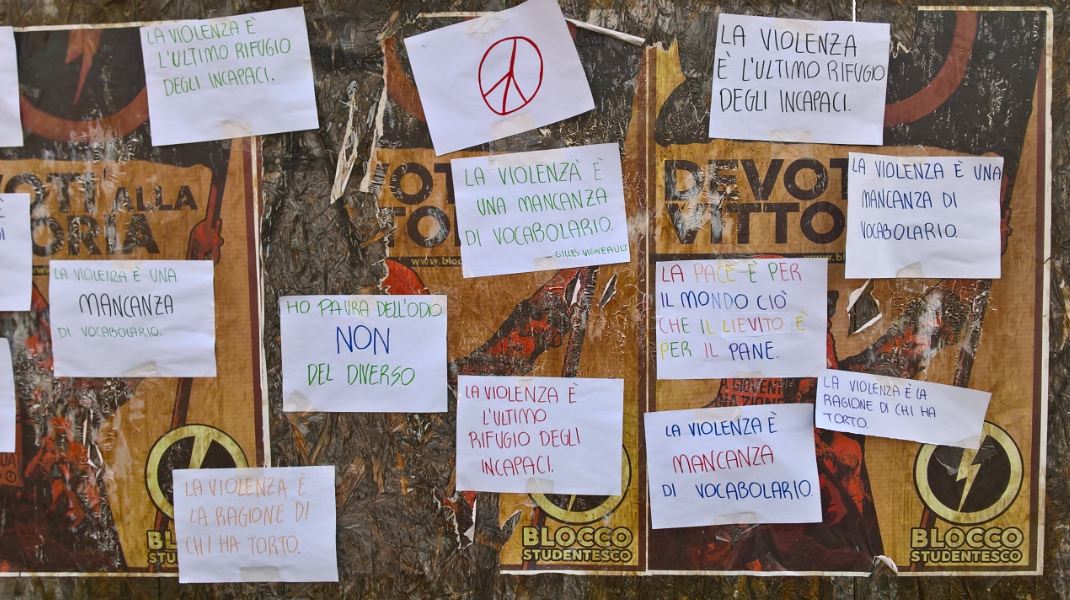 LA VIOLENZA È
L'ULTIMO RIFUGIO
DEGLI INCAPACI.
LA VIOLENZA
È L'ULTIMO RIFUGIO
DEGLI INCAPACI.
LA VIOLENZA È
UNA MANCANZA
DI VOCABOLARIO.
- GILLES VIGNEAULT
LA VIOLENZA È UNA
MANCANZA DI
VOCABOLARIO.
LA VIOLENZA È UNA
MANCANZA
DI VOCABOLARIO.
HO PAURA DELL'ODIO
NON
DEL DIVERSO
LA PACE È PER
IL MONDO CIÒ
CHE IL LIEVITO È
PER IL PANE.
LA VIOLENZA È
L'ULTIMO
RIFUGIO DEGLI
INCAPACI.
LA VIOLENZA È LA
RAGIONE DI CHI HA
TORTO.
LA VIOLENZA È
MANCANZA
DI VOCABOLARIO.
LA VIOLENZA È
LA RAGIONE DI
CHI HA TORTO.
VOTI ALLA
TORIA
VOT
TOR
www.bloc
DEVOT
VITTO
www.b
BLOCCO
STUDENTESCO
BLOCCO
STUDENTESCO
BLOCCO
STUDENTESCO